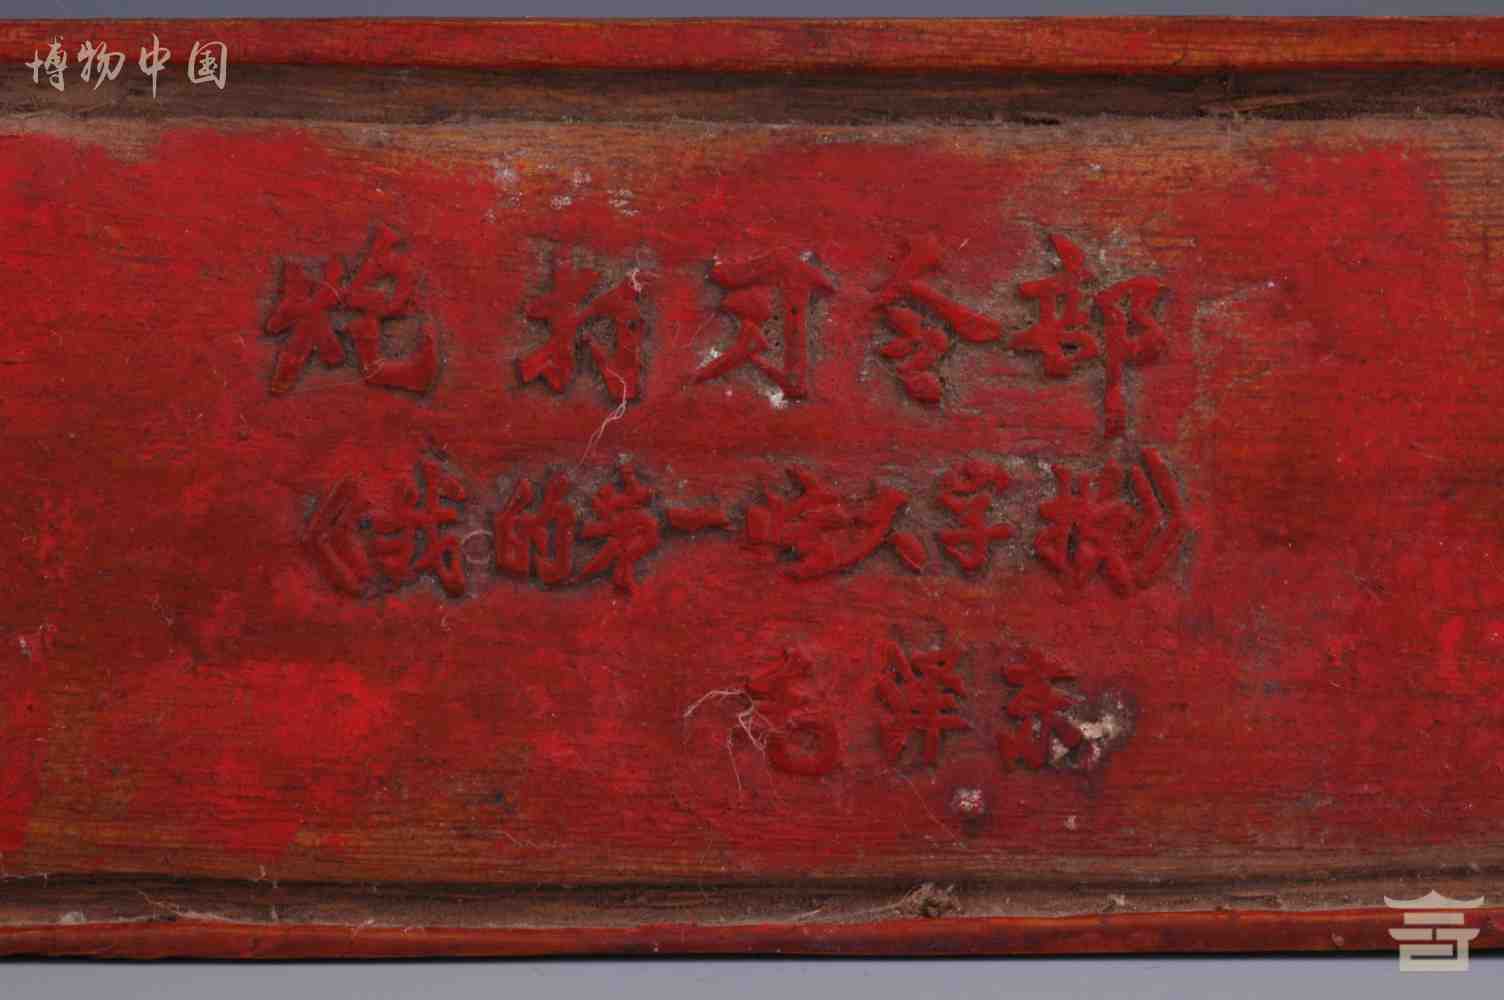 博物中国
炮打司令部
《我的第一张大字报》
毛泽东